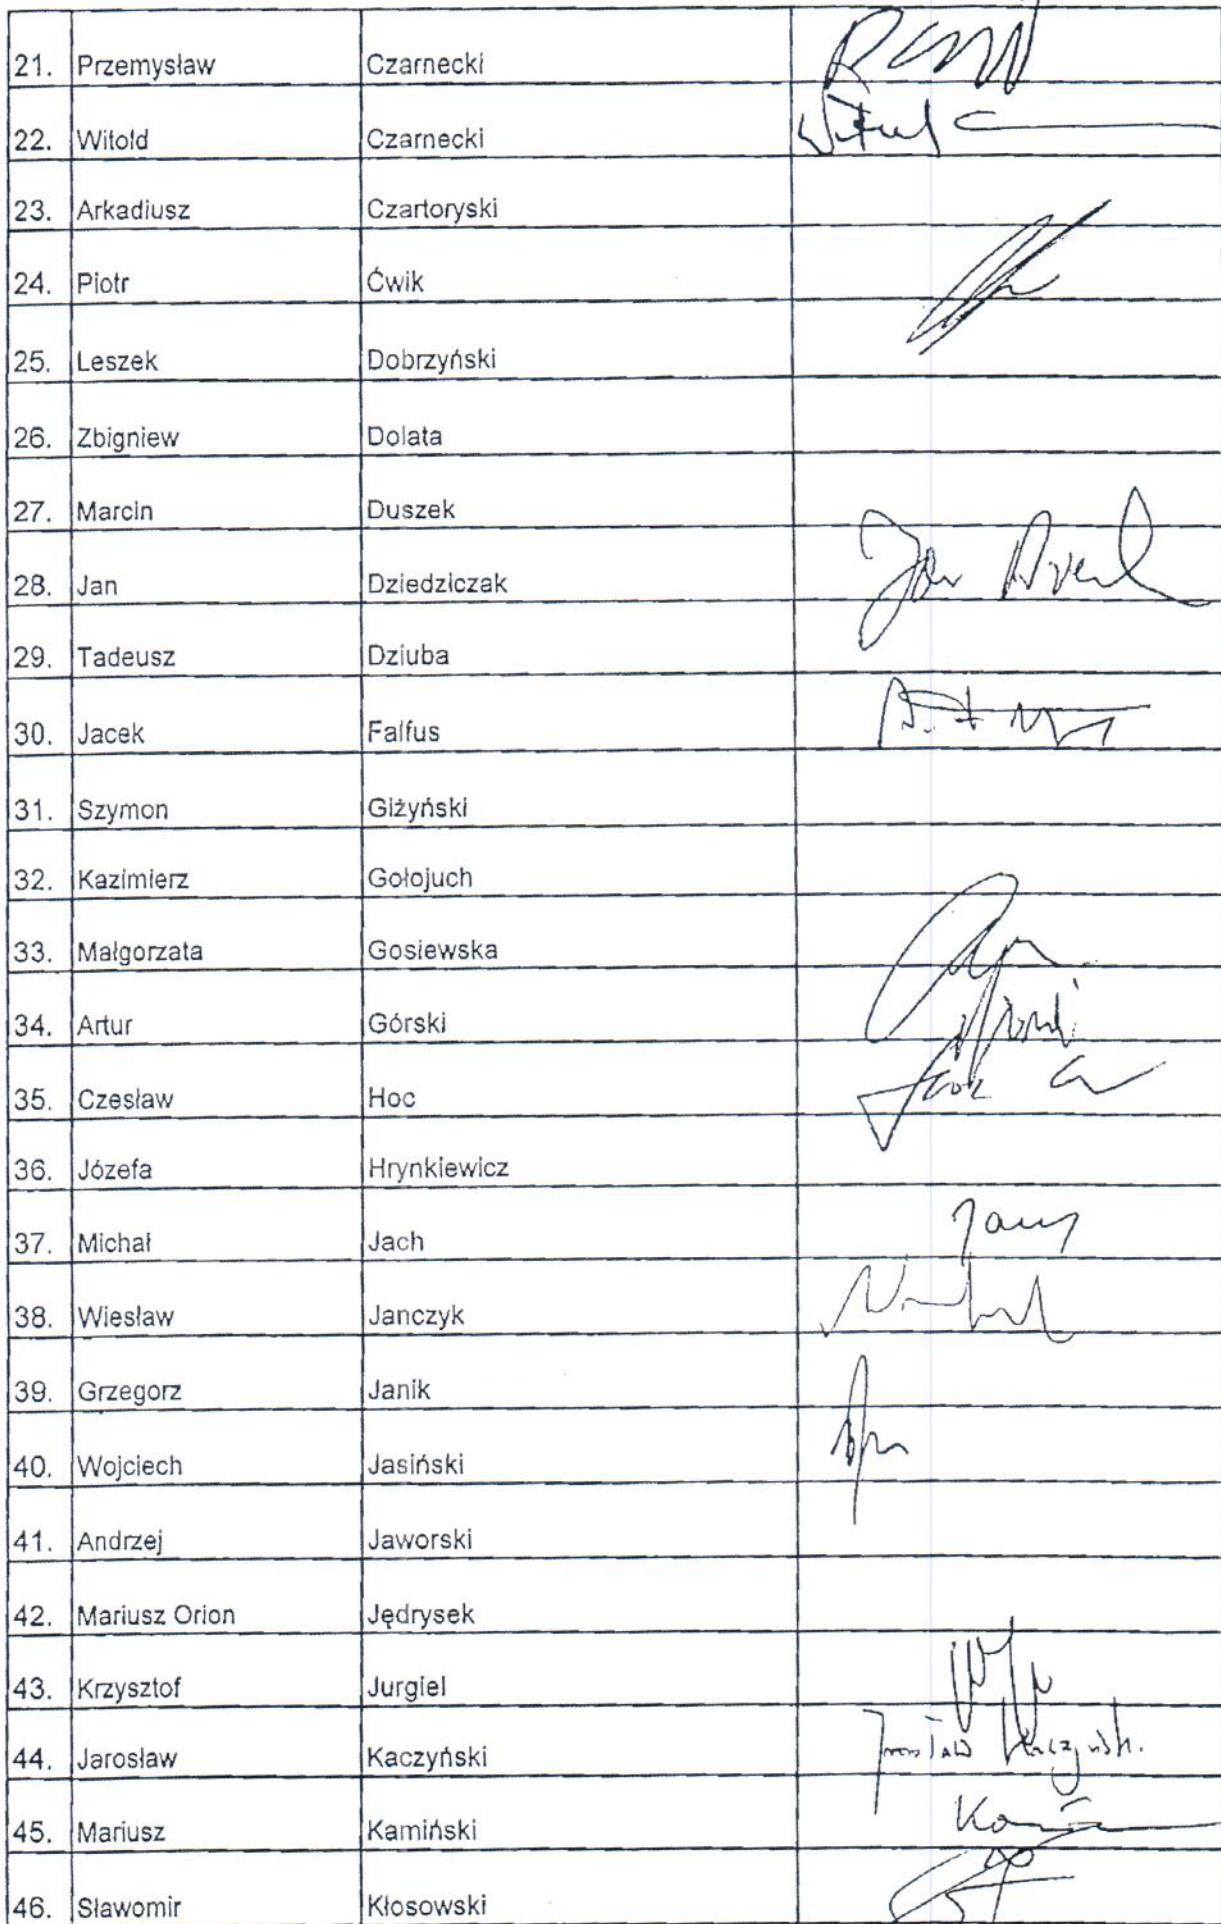 21. Przemysław Czarnecki
22. Witold Czarnecki
23. Arkadiusz Czartoryski
24. Piotr Ćwik
25. Leszek Dobrzyński
26. Zbigniew Dolata
27. Marcin Duszek
28. Jan Dziedziczak
29. Tadeusz Dziuba
30. Jacek Falfus
31. Szymon Giżyński
32. Kazimierz Gołojuch
33. Małgorzata Gosiewska
34. Artur Górski
35. Czesław Hoc
36. Józefa Hrynkiewicz
37. Michał Jach
38. Wiesław Janczyk
39. Grzegorz Janik
40. Wojciech Jasiński
41. Andrzej Jaworski
42. Mariusz Orion Jędrysek
43. Krzysztof Jurgiel
44. Jarosław Kaczyński
45. Mariusz Kamiński
46. Sławomir Kłosowski